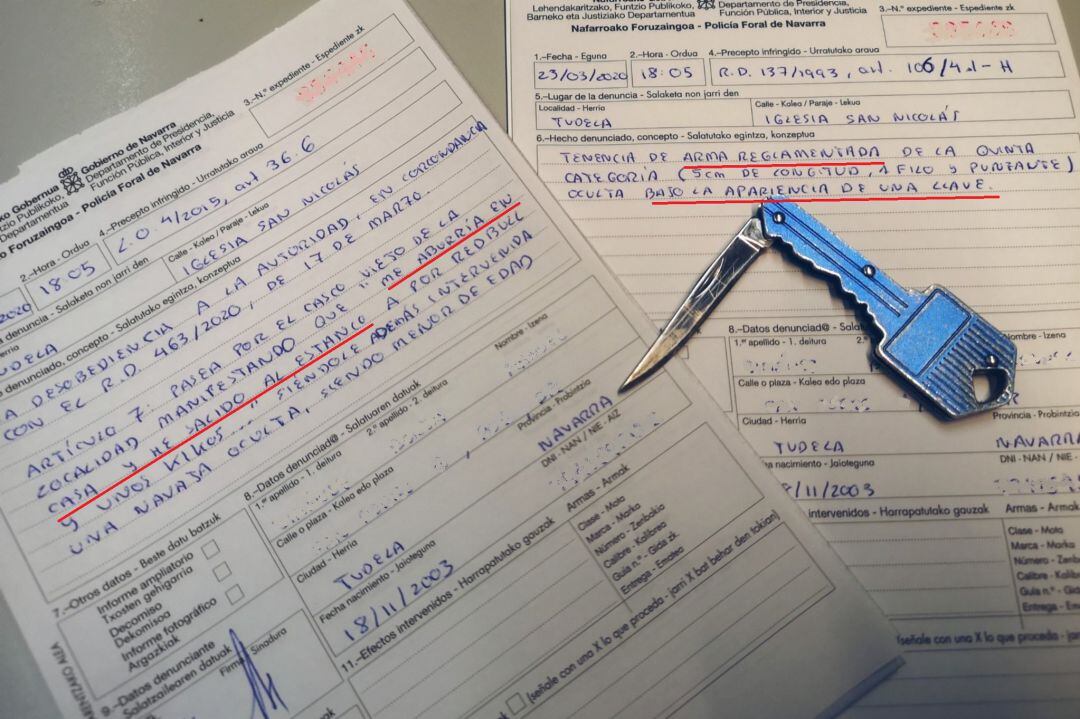 Gobierno de Navarra
Departamento de Presidencia,
Función Pública, Interior y Justicia
Policía Foral de Navarra
3.-N.º expediente - Espediente zk
2.-Hora - Ordua
18:05
4.-Precepto infringido - Urratutako araua
L.O. 4/2015, art 36.6
Calle - Kalea / Paraje - Lekua
IGLESIA SAN NICOLÁS
A DESOBEDIENCIA A LA AUTORIDAD, EN CORCONDANCIA
CON EL R.D. 463/2020, DE 17 DE MARZO
ARTÍCULO 7. PASEA POR EL CASCO VIEJO DE LA
LOCALIDAD MANIFESTANDO QUE "ME ABURRÍA EN
CASA Y HE SALIDO AL ESTANCO A POR REDBULL
Y UNOS KIKOS...", SIÉNDOLE ADEMÁS INTERVENIDA
UNA NAVAJA OCULTA, SIENDO MENOR DE EDAD
7.-Otros datos - Beste datu batzuk
Informe ampliatorio
Txosten gehigarria
Decomiso
Dekomisoa
Informe fotográfico
Argazkiak
8.-Datos denunciad@ - Salatuaren datuak
1.º apellido - 1. deitura
2.º apellido - 2. deitura
Nombre - Izena
Calle o plaza - Kalea edo plaza
Ciudad - Herria
TUDELA
Provincia - Probintzia
NAVARRA
DNI - NAN / NIE - AIZ
Fecha nacimiento - Jaioteguna
18/11/2003
9.-Datos denunciante
Salatzailearen datuak
Firma - Sinadura
11.-Efectos intervenidos - Harrapatutako gauzak
Armas - Armak
Clase - Mota
Marca - Marka
Número - Zenbakia
Calibre - Kalibrea
Guía n.º - Gida zk
Entrega - Ematea
(señale con una X lo que proceda - jarri X bat behar den tokian)
Lehendakaritzako, Funtzio Publikoko,
Barneko eta Justiziako Departamentua
Departamento de Presidencia,
Función Pública, Interior y Justicia
Nafarroako Foruzaingoa - Policía Foral de Navarra
3.-N.º expediente - Espediente zk
1.-Fecha - Eguna
23/03/2020
2.-Hora - Ordua
18:05
4.-Precepto infringido - Urratutako araua
R.D. 137/1993, art. 106/4.1-H
5.-Lugar de la denuncia - Salaketa non jarri den
Localidad - Herria
TUDELA
Calle - Kalea / Paraje - Lekua
IGLESIA SAN NICOLÁS
6.-Hecho denunciado, concepto - Salatutako egintza, konzeptua
TENENCIA DE ARMA REGLAMENTADA DE LA QUINTA
CATEGORÍA (5cm DE LONGITUD, 1 FILO Y PUNTANTE)
OCULTA BAJO LA APARIENCIA DE UNA LLAVE.
8.-Datos denunciad@
1.º apellido - 1. deitura
Nombre - Izena
Calle o plaza - Kalea edo plaza
Ciudad - Herria
TUDELA
NAVARRA
DNI - NAN / NIE
nacimiento - Jaioteguna
/11/2003
intervenidos - Harrapatutako gauzak
Armas - Armak
Clase - Mota
Marca - Marka
Calibre - Kalibrea
Entrega - Ematea
(señale con una X lo que proceda - jarri